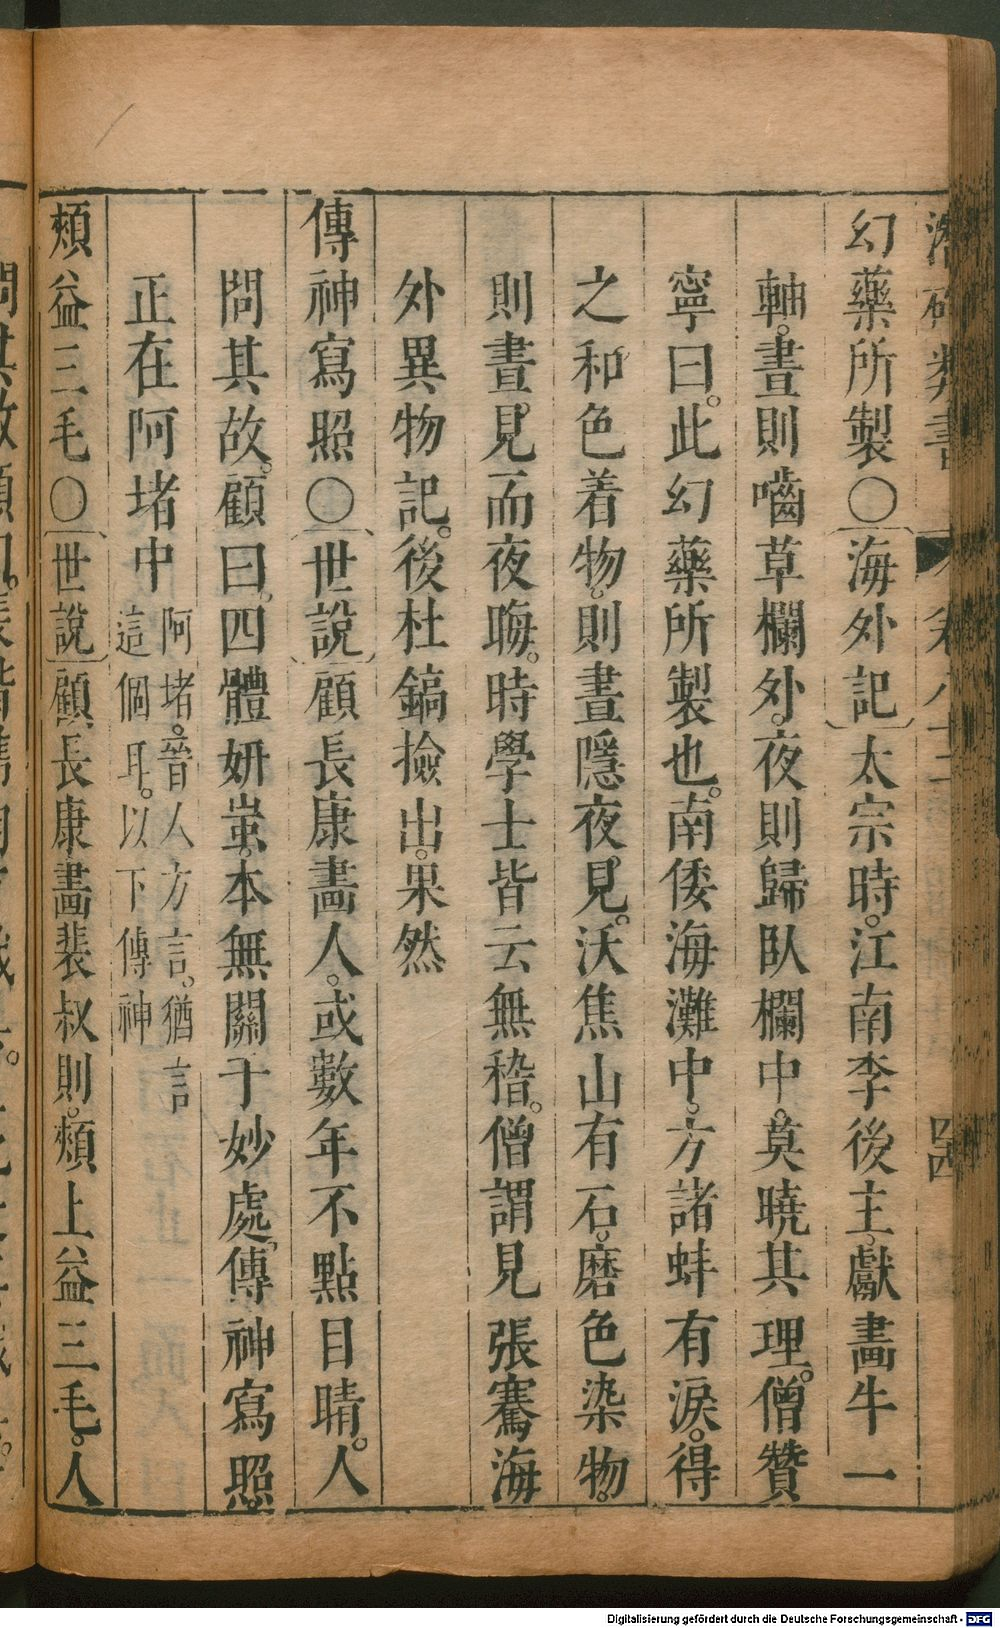 幻藥所製〇〔海外記〕太宗時。江南李後主。獻畫牛一
軸。晝則嚙草欄外。夜則歸臥欄中。莫曉其理。僧贊
寧曰。此幻藥所製也。南倭海灘中。方諸蚌有淚。得
之和色着物。則晝隱夜見。沃焦山有石。磨色染物。
則晝見而夜晦。時學士皆云無稽。僧謂見張騫海
外異物記。後杜鎬撿出。果然
傳神寫照〇〔世說〕顧長康畫人。或數年不點目睛。人
問其故。顧曰。四體妍蚩。本無關于妙處。傳神寫照。
正在阿堵中 阿堵。晉人方言。猶言
這個耳。以下傳神
頰益三毛〇〔世說〕顧長康畫裴叔則。頰上益三毛。人
Digitalisierung gefördert durch die Deutsche Forschungsgemeinschaft - DFG